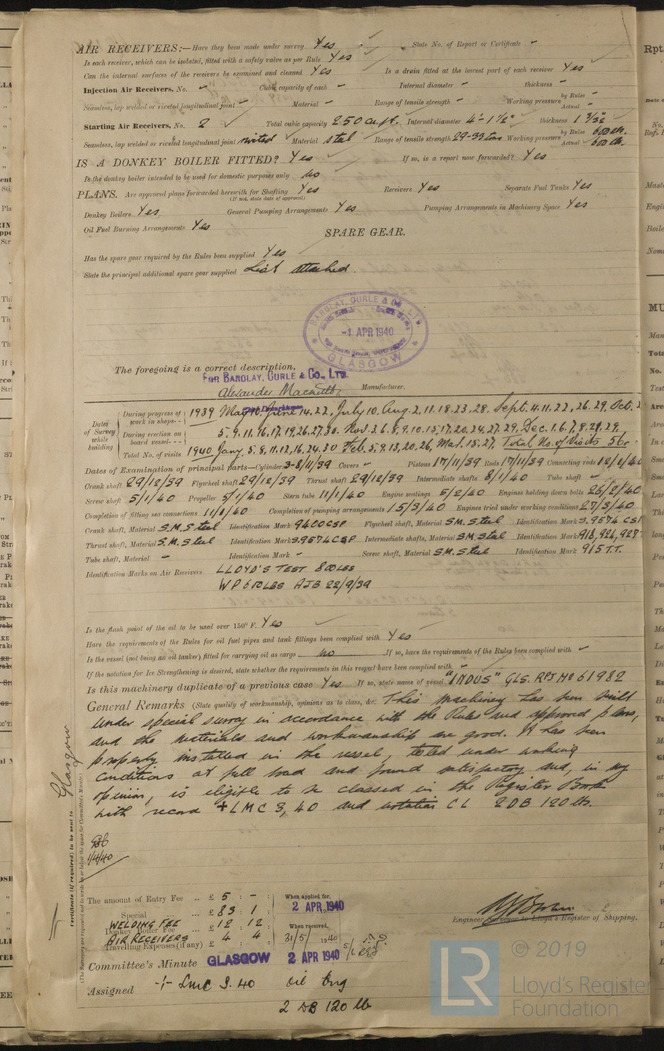 AIR RECEIVERS:—Have they been made under survey Yes State No. of Report or Certificate -
Is each receiver, which can be isolated, fitted with a safety valve as per Rule Yes
Can the internal surfaces of the receivers be examined and cleaned Yes Is a drain fitted at the lowest part of each receiver Yes
Injection Air Receivers, No. - Cubic capacity of each - Internal diameter - thickness -
Seamless, lap welded or riveted longitudinal joint - Material - Range of tensile strength - Working pressure by Rules - Actual -
Starting Air Receivers, No. 2 Total cubic capacity 250 cu.ft. Internal diameter 4'-1½" thickness 1 9/32
Seamless, lap welded or riveted longitudinal joint riveted Material steel Range of tensile strength 29-33 tons Working pressure by Rules 600 lb. Actual 600 lb.
IS A DONKEY BOILER FITTED? Yes If so, is a report now forwarded? Yes
Is the donkey boiler intended to be used for domestic purposes only no
PLANS. Are approved plans forwarded herewith for Shafting Yes Receivers Yes Separate Fuel Tanks Yes
(If not, state date of approval)
Donkey Boilers Yes General Pumping Arrangements Yes Pumping Arrangements in Machinery Space Yes
Oil Fuel Burning Arrangements Yes
SPARE GEAR.
Has the spare gear required by the Rules been supplied Yes
State the principal additional spare gear supplied List attached
BARCLAY, CURLE & Co. LTD.
-1 APR 1940
GLASGOW
The foregoing is a correct description,
FOR BARCLAY, CURLE & CO., LTD.
Manufacturer.
Dates of Survey while building
During progress of work in shops-- 1939 June 14.22, July 10. Aug 2.11.18.23.28. Sept. 4.11.22.26.29, Oct. 2
During erection on board vessel--- 5.9.11.16.17.19.26.27.30. Nov. 2.6.8.9.10.15.17.20.24.27.29. Dec. 1.6.7.8.28.29.
Total No. of visits 1940 Jany. 5.9.11.12.16.24.30 Feb. 5.9.13.20.26, Mar. 15.27. Total No. of Visits 56
Dates of Examination of principal parts—Cylinders 3-8/11/39 Covers - Pistons 17/11/39 Rods 17/11/39 Connecting rods
Crank shaft 29/12/39 Flywheel shaft 29/12/39 Thrust shaft 29/12/39 Intermediate shafts 8/1/40 Tube shaft -
Screw shaft 5/1/40 Propeller 5/1/40 Stern tube 11/1/40 Engine seatings 5/2/40 Engines holding down bolts 26/2/40
Completion of fitting sea connections 11/1/40 Completion of pumping arrangements 15/3/40 Engines tried under working conditions 27/3/40
Crank shaft, Material S.M. Steel Identification Mark 9400CSP Flywheel shaft, Material S.M. Steel Identification Mark S.9574 CSP
Thrust shaft, Material S.M. Steel Identification Mark S.9574CSP Intermediate shafts, Material S.M. Steel Identification Marks 918,926,927
Tube shaft, Material - Identification Mark - Screw shaft, Material S.M. Steel Identification Mark 915 T.T.
Identification Marks on Air Receivers LLOYD'S TEST 800LBS
W P 600LBS AJB 22/9/39
Is the flash point of the oil to be used over 150° F. Yes
Have the requirements of the Rules for oil fuel pipes and tank fittings been complied with Yes
Is the vessel (not being an oil tanker) fitted for carrying oil as cargo no If so, have the requirements of the Rules been complied with -
If the notation for Ice Strengthening is desired, state whether the requirements in this respect have been complied with -
Is this machinery duplicate of a previous case Yes If so, state name of vessel "INDUS" GLS. RPT No 61982
General Remarks (State quality of workmanship, opinions as to class, &c. This machinery has been built
under special survey in accordance with the Rules and approved plans,
and the materials and workmanship are good. It has been
properly installed in the vessel, tested under working
conditions at full load and found satisfactory and, in my
opinion, is eligible to be classed in the Register Book
with record +LMC 3,40 and notation CL 2DB 120 lb.
1/4/40
Glasgow
Certificate (if required) to be sent to
The amount of Entry Fee .. £ 5 : - :
Special .. £ 83 : 1 :
WELDING FEE
Donkey Boiler Fee .. £ 12 : 12 :
AIR RECEIVERS
Travelling Expenses (if any) £ 4 : 4 :
When applied for,
2 APR 1940
When received,
31/5/1940
Engineer Surveyor to Lloyd's Register of Shipping.
Committee's Minute GLASGOW 2 APR 1940
Assigned + LMC 3.40 Oil Eng
2 DB 120 lb
© 2019
LR
Lloyd's Register
Foundation